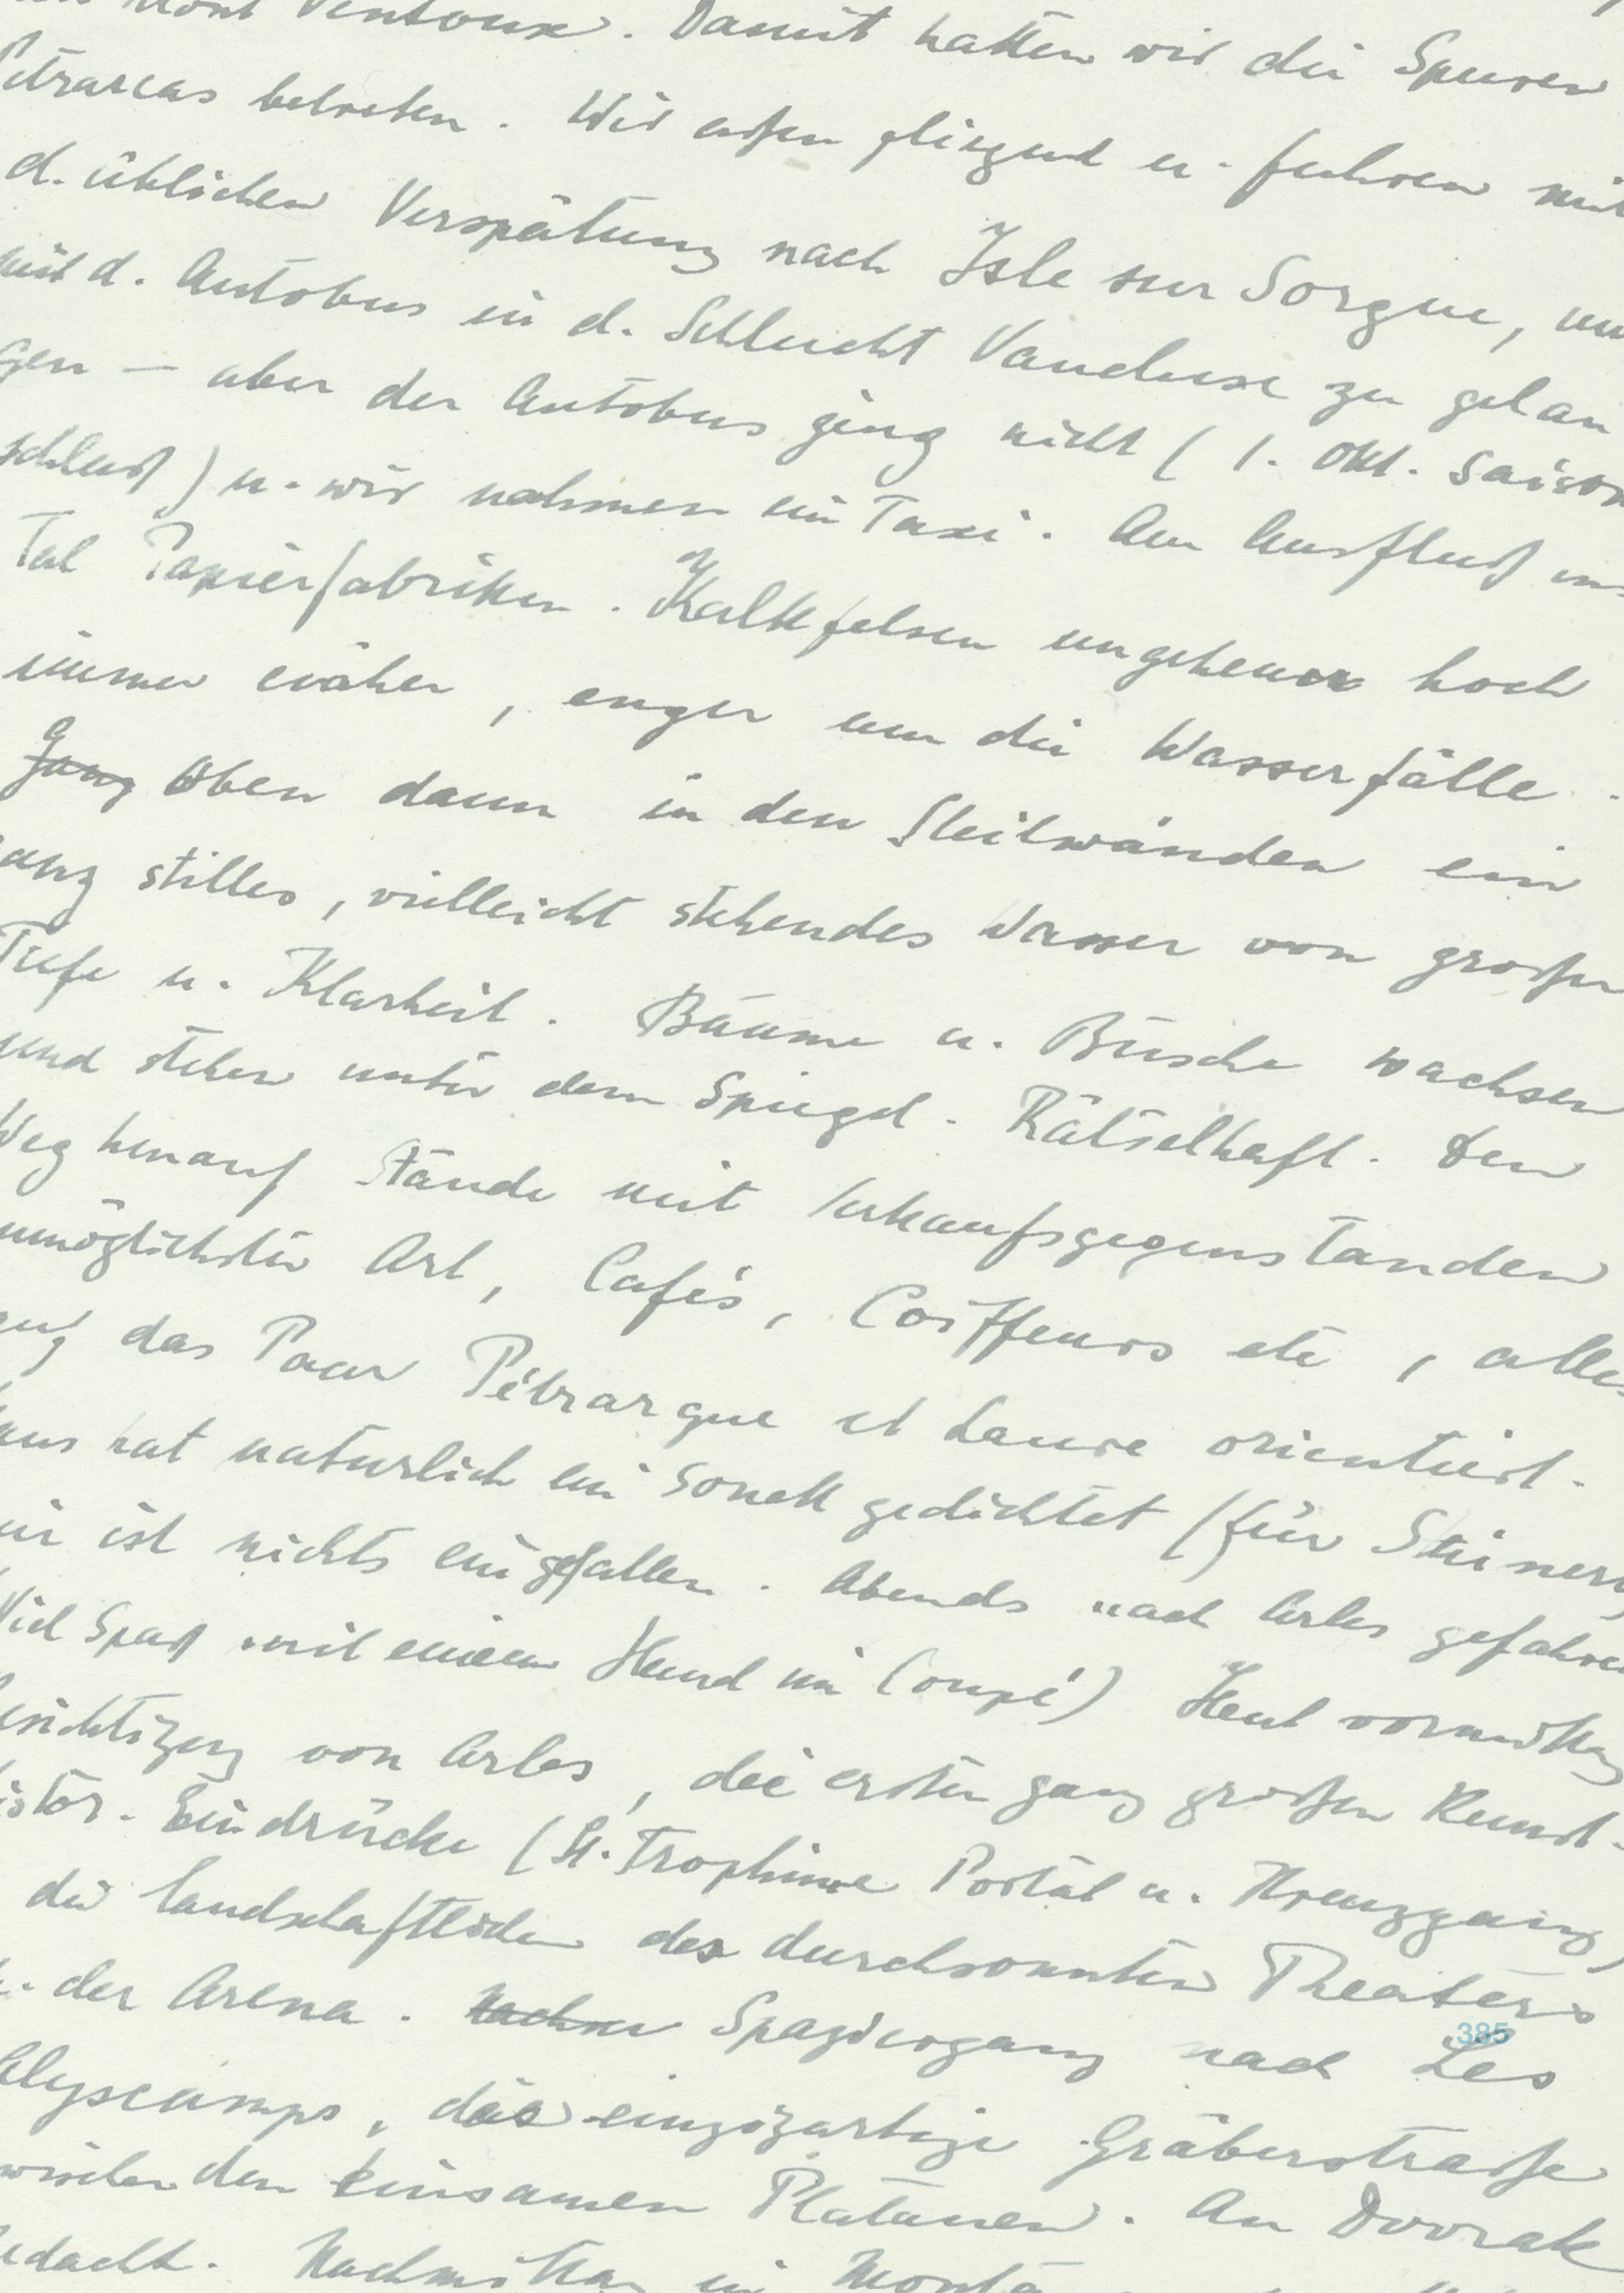 Mont Ventoux. Damit hatten wir die Spuren
Petrarcas betreten. Wir aßen fliegend u. fuhren mit
d. üblichen Verspätung nach Isle sur Sorgue, um
mit d. Autobus in d. Schlucht Vaucluse zu gelan
gen – aber der Autobus ging nicht (1. Okt. Saison
schluß) u. wir nahmen ein Taxi. Am Ausfluß ins
Tal Papierfabriken. Kalkfelsen ungeheuer hoch
immer näher, enger um die Wasserfälle.
Ganz Oben dann in den Steilwänden ein
ganz stilles, vielleicht stehendes Wasser von großer
Tiefe u. Klarheit. Bäume u. Büsche wachsen
und stehen unter dem Spiegel. Rätselhaft. Den
Weg hinauf Stände mit Verkaufsgegenständen
unmöglichster Art, Cafés, Coiffeurs etc, alles
auf das Paar Pétrarque et Laure orientiert.
hat natürlich ein Sonett gedichtet (für Steiner)
mir ist nichts eingefallen. Abends nach Arles gefahren
Viel Spaß mit einem Hund im Coupé) Heut vormittag
Besichtigung von Arles, die ersten ganz großen Kunst-
histor. Eindrücke (St. Trophime Portal u. Kreuzgang)
die landschaftlichen des durchsonnten Theaters
u. der Arena. Spaziergang nach Les
385
Alyscamps, das einzigartige Gräberstraße
zwischen den einsamen Platanen. An Dvorak
gedacht. Nachmittag in